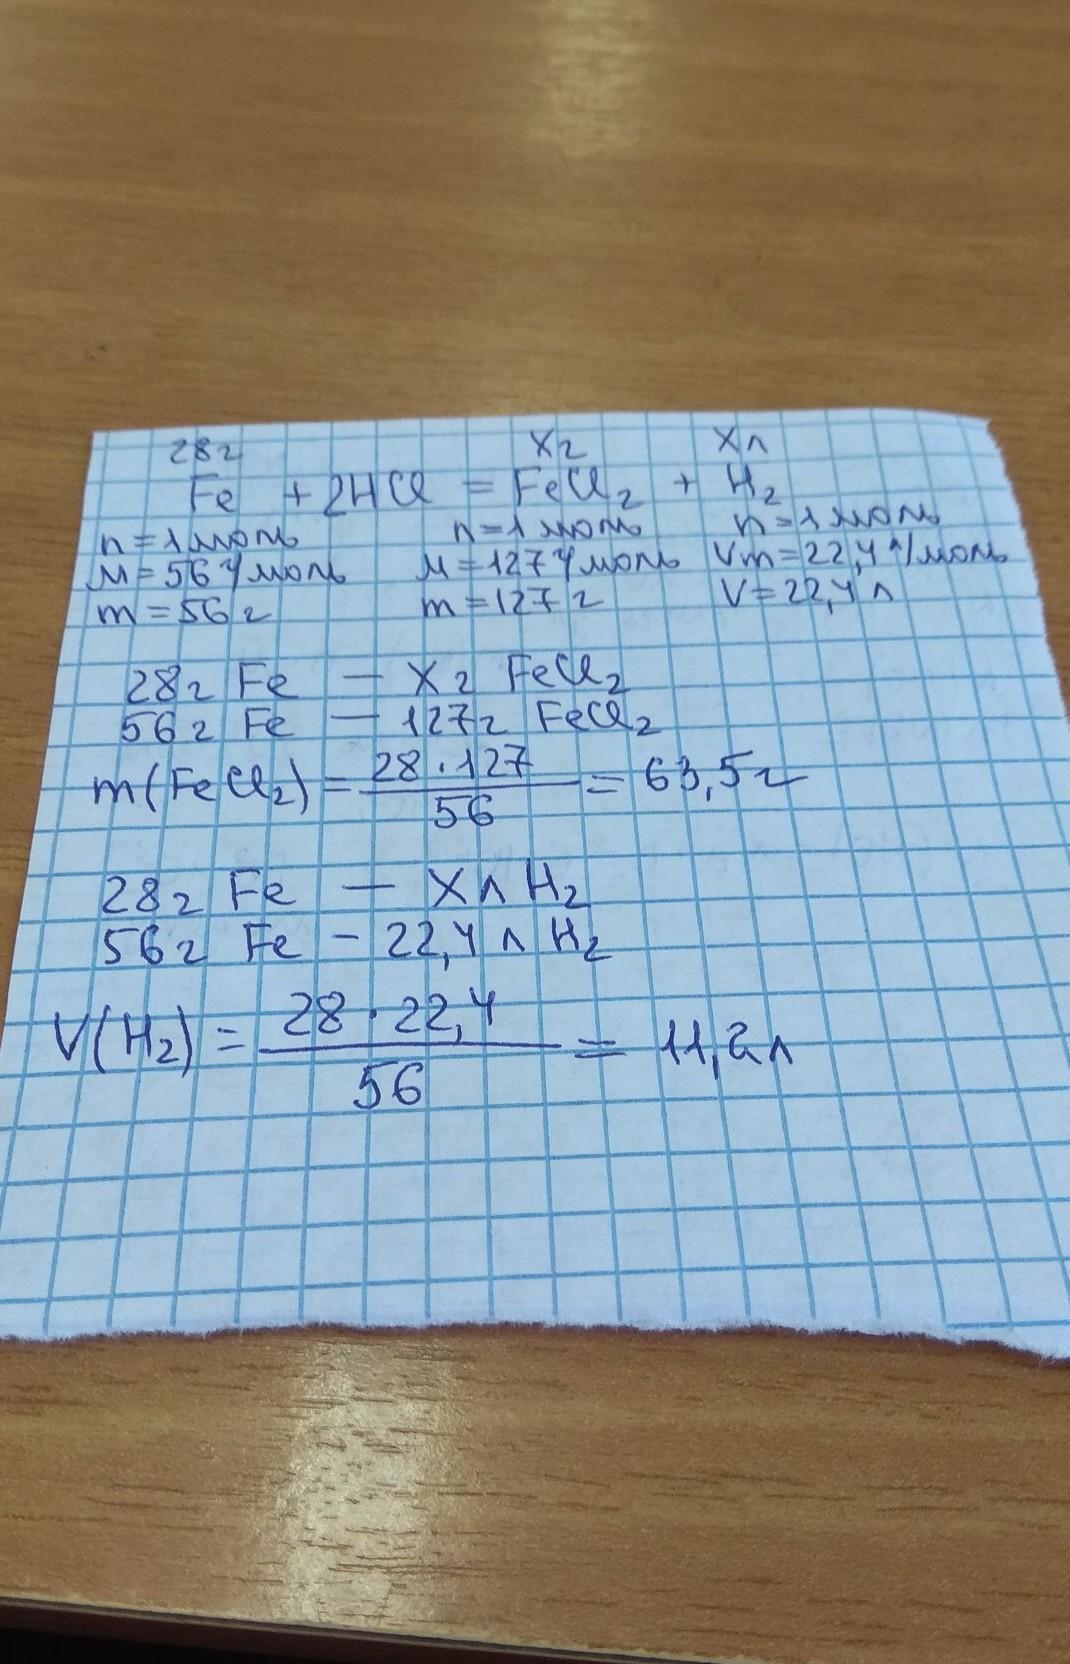 28г Xг Xл
Fe + 2HCl = FeCl₂ + H₂
n=1моль n=1моль n=1моль
M=56г/моль M=127г/моль Vm=22,4л/моль
m=56г m=127г V=22,4л
28г Fe — Xг FeCl₂
56г Fe — 127г FeCl₂
m(FeCl₂) = 28·127/56 = 63,5г
28г Fe — Xл H₂
56г Fe – 22,4л H₂
V(H₂) = 28·22,4/56 = 11,2л